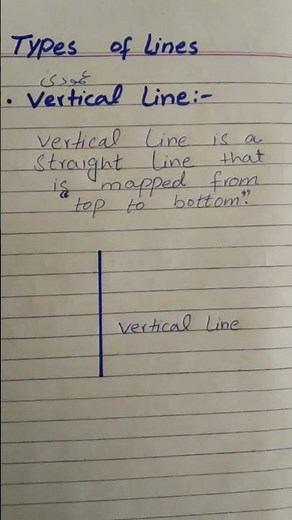 Types of Lines
عمودی
• Vertical Line:-
Vertical Line is a
Straight Line that
is mapped from
"top to bottom".
Vertical Line